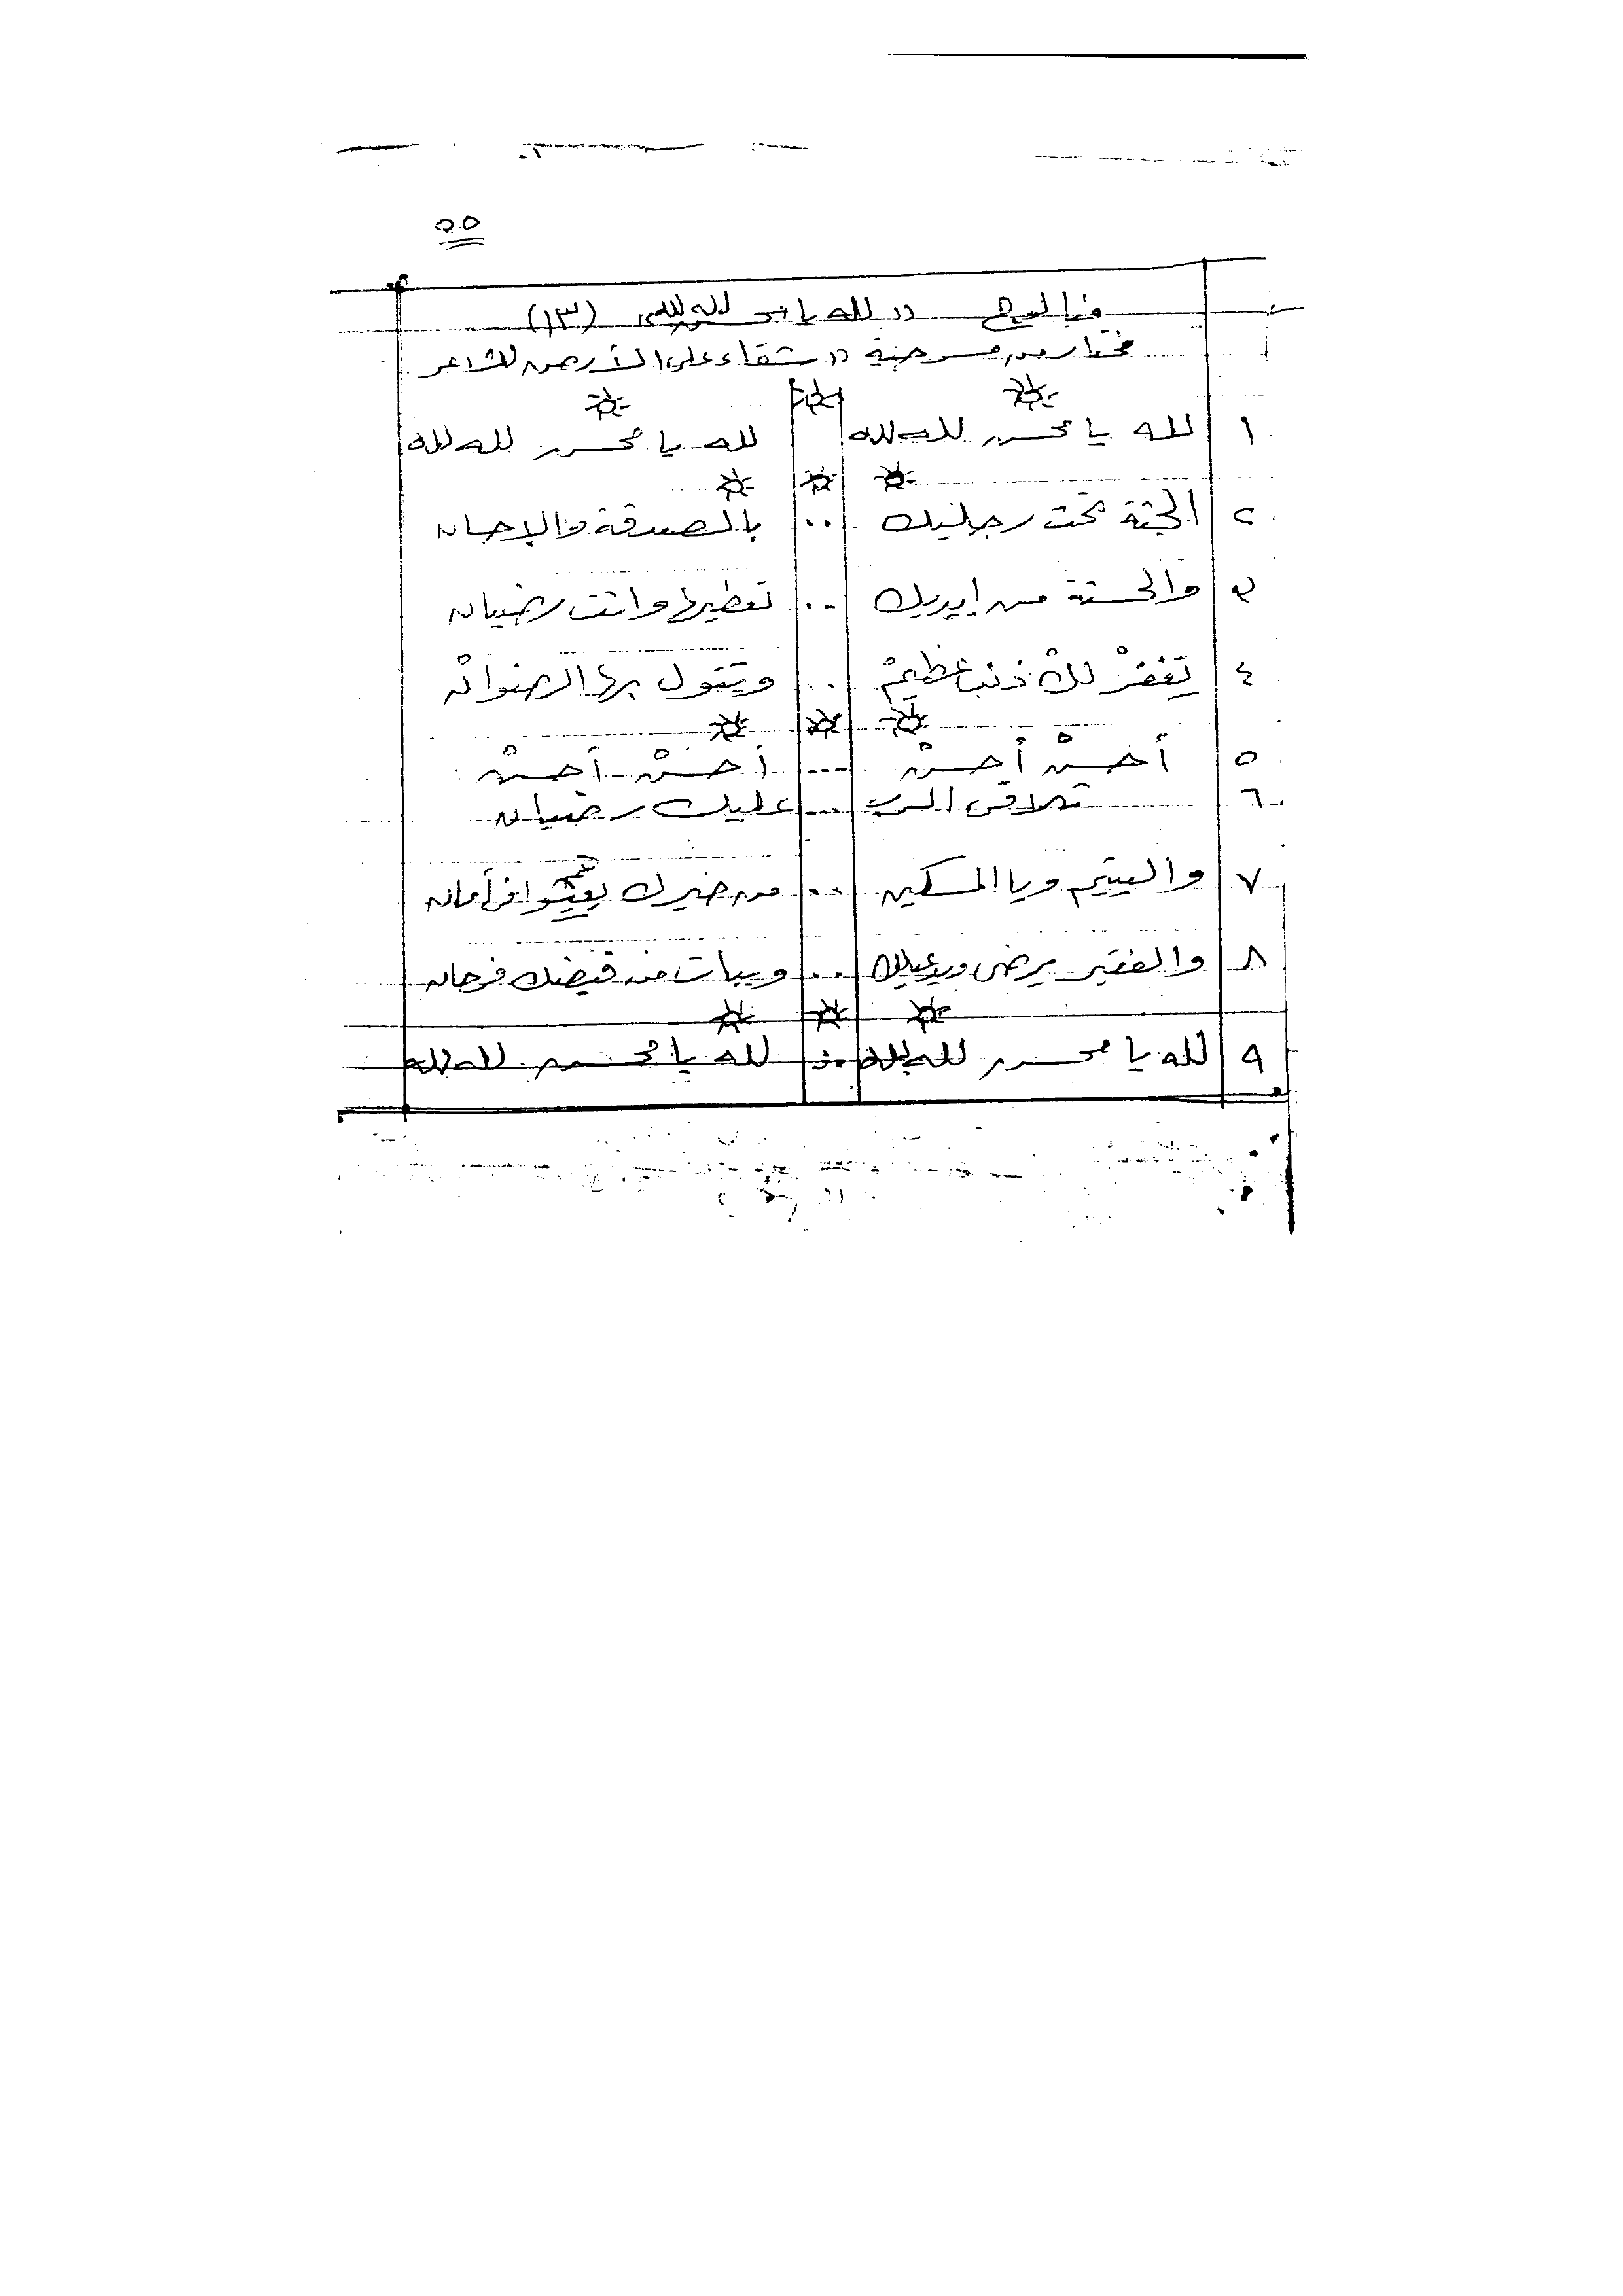 ٥٥
لله يا محسن لله لله (١٣)
مختار من مسرحية " شقاء على الأرض للشاعر
١ لله يا محسن لله لله لله يا محسن لله لله
٢ الجنة تحت رجليك .. بالصدقة والإحسان
٣ والحسنة من إيديك .. تعطيها وانت رضيان
٤ تِغفرْ لكْ ذنب عظيمْ .. وتنول بها الرضوانْ
٥ أحسنْ أحسنْ ... أحسنْ - أحسنْ
٦ تلاقى الرب ... عليك رضيان
٧ واليتيم ويا المسكين .. من خيرك يعيشوا فى أمان
٨ والفقير يرضى ويدعيلك .. ويبات من فيضك فرحان
٩ لله يا محسن لله لله .. لله يا محسن لله لله